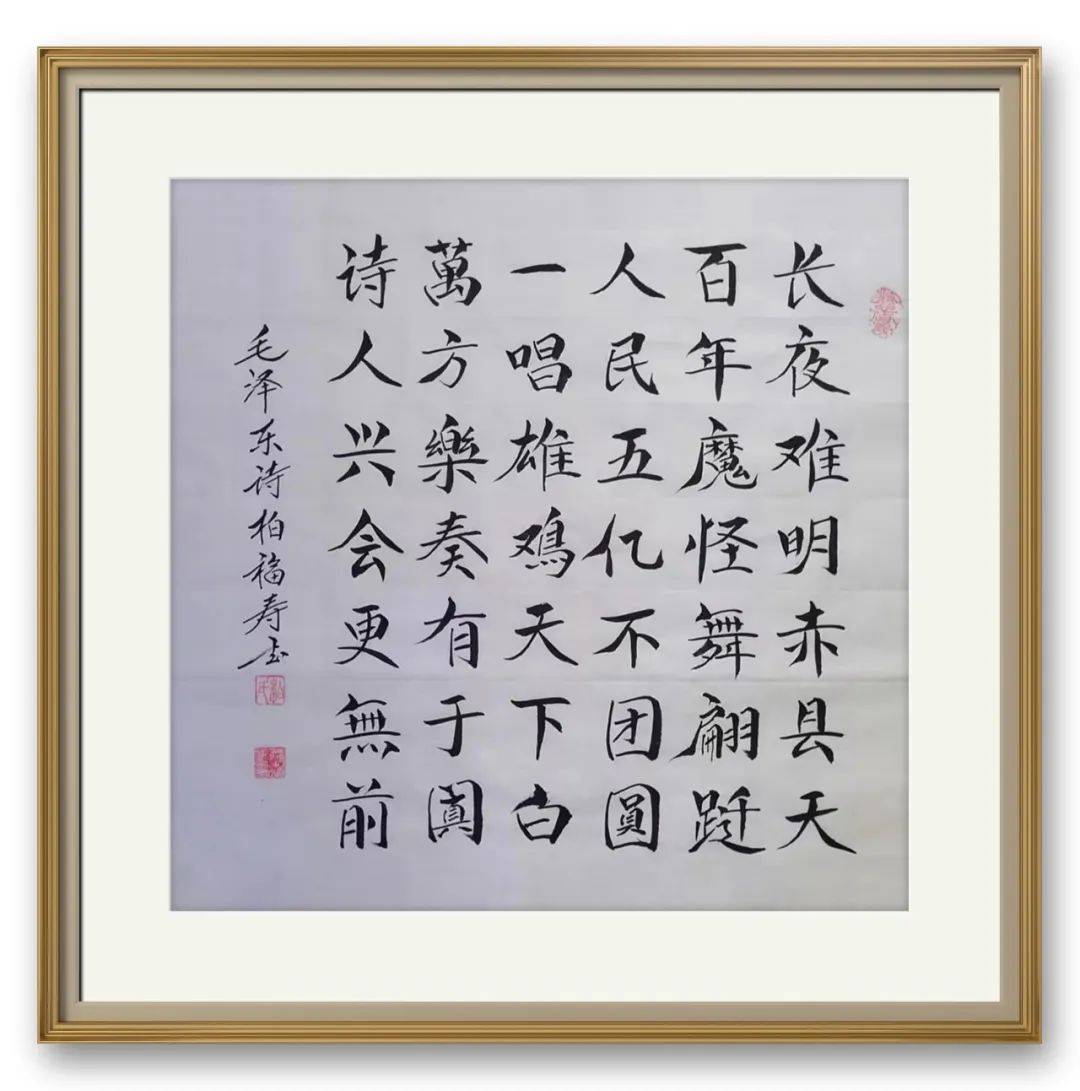 长夜难明赤县天
百年魔怪舞翩跹
人民五亿不团圓
一唱雄鸡天下白
萬方樂奏有于闐
诗人兴会更無前
毛泽东诗柏福寿书